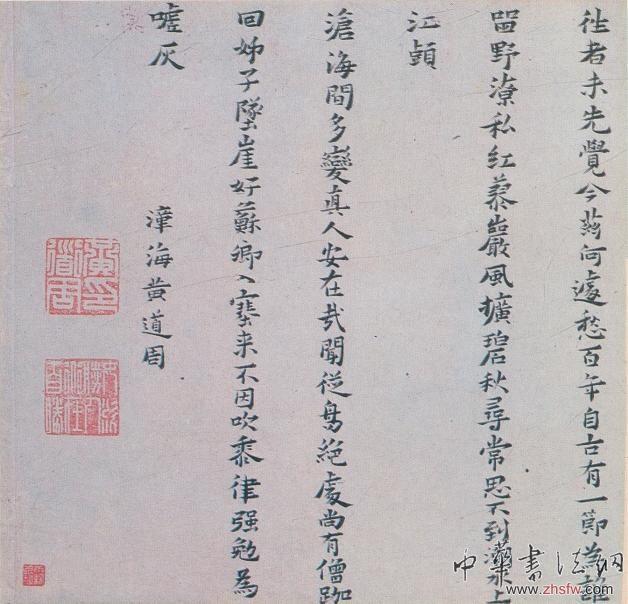 往者未先覺今茲何遽愁百年自古有一節為誰
留野潦私紅蓼嚴風擴碧秋尋常思不到瀑泉上
江頭
滄海間多變真人安在哉聞從鳥絕處尚有僧跏
回姊子墜崖好蘇卿入塞来不因吹黍律强勉為
噓灰
漳海黄道周
中華書法網
www.zhsfw.com